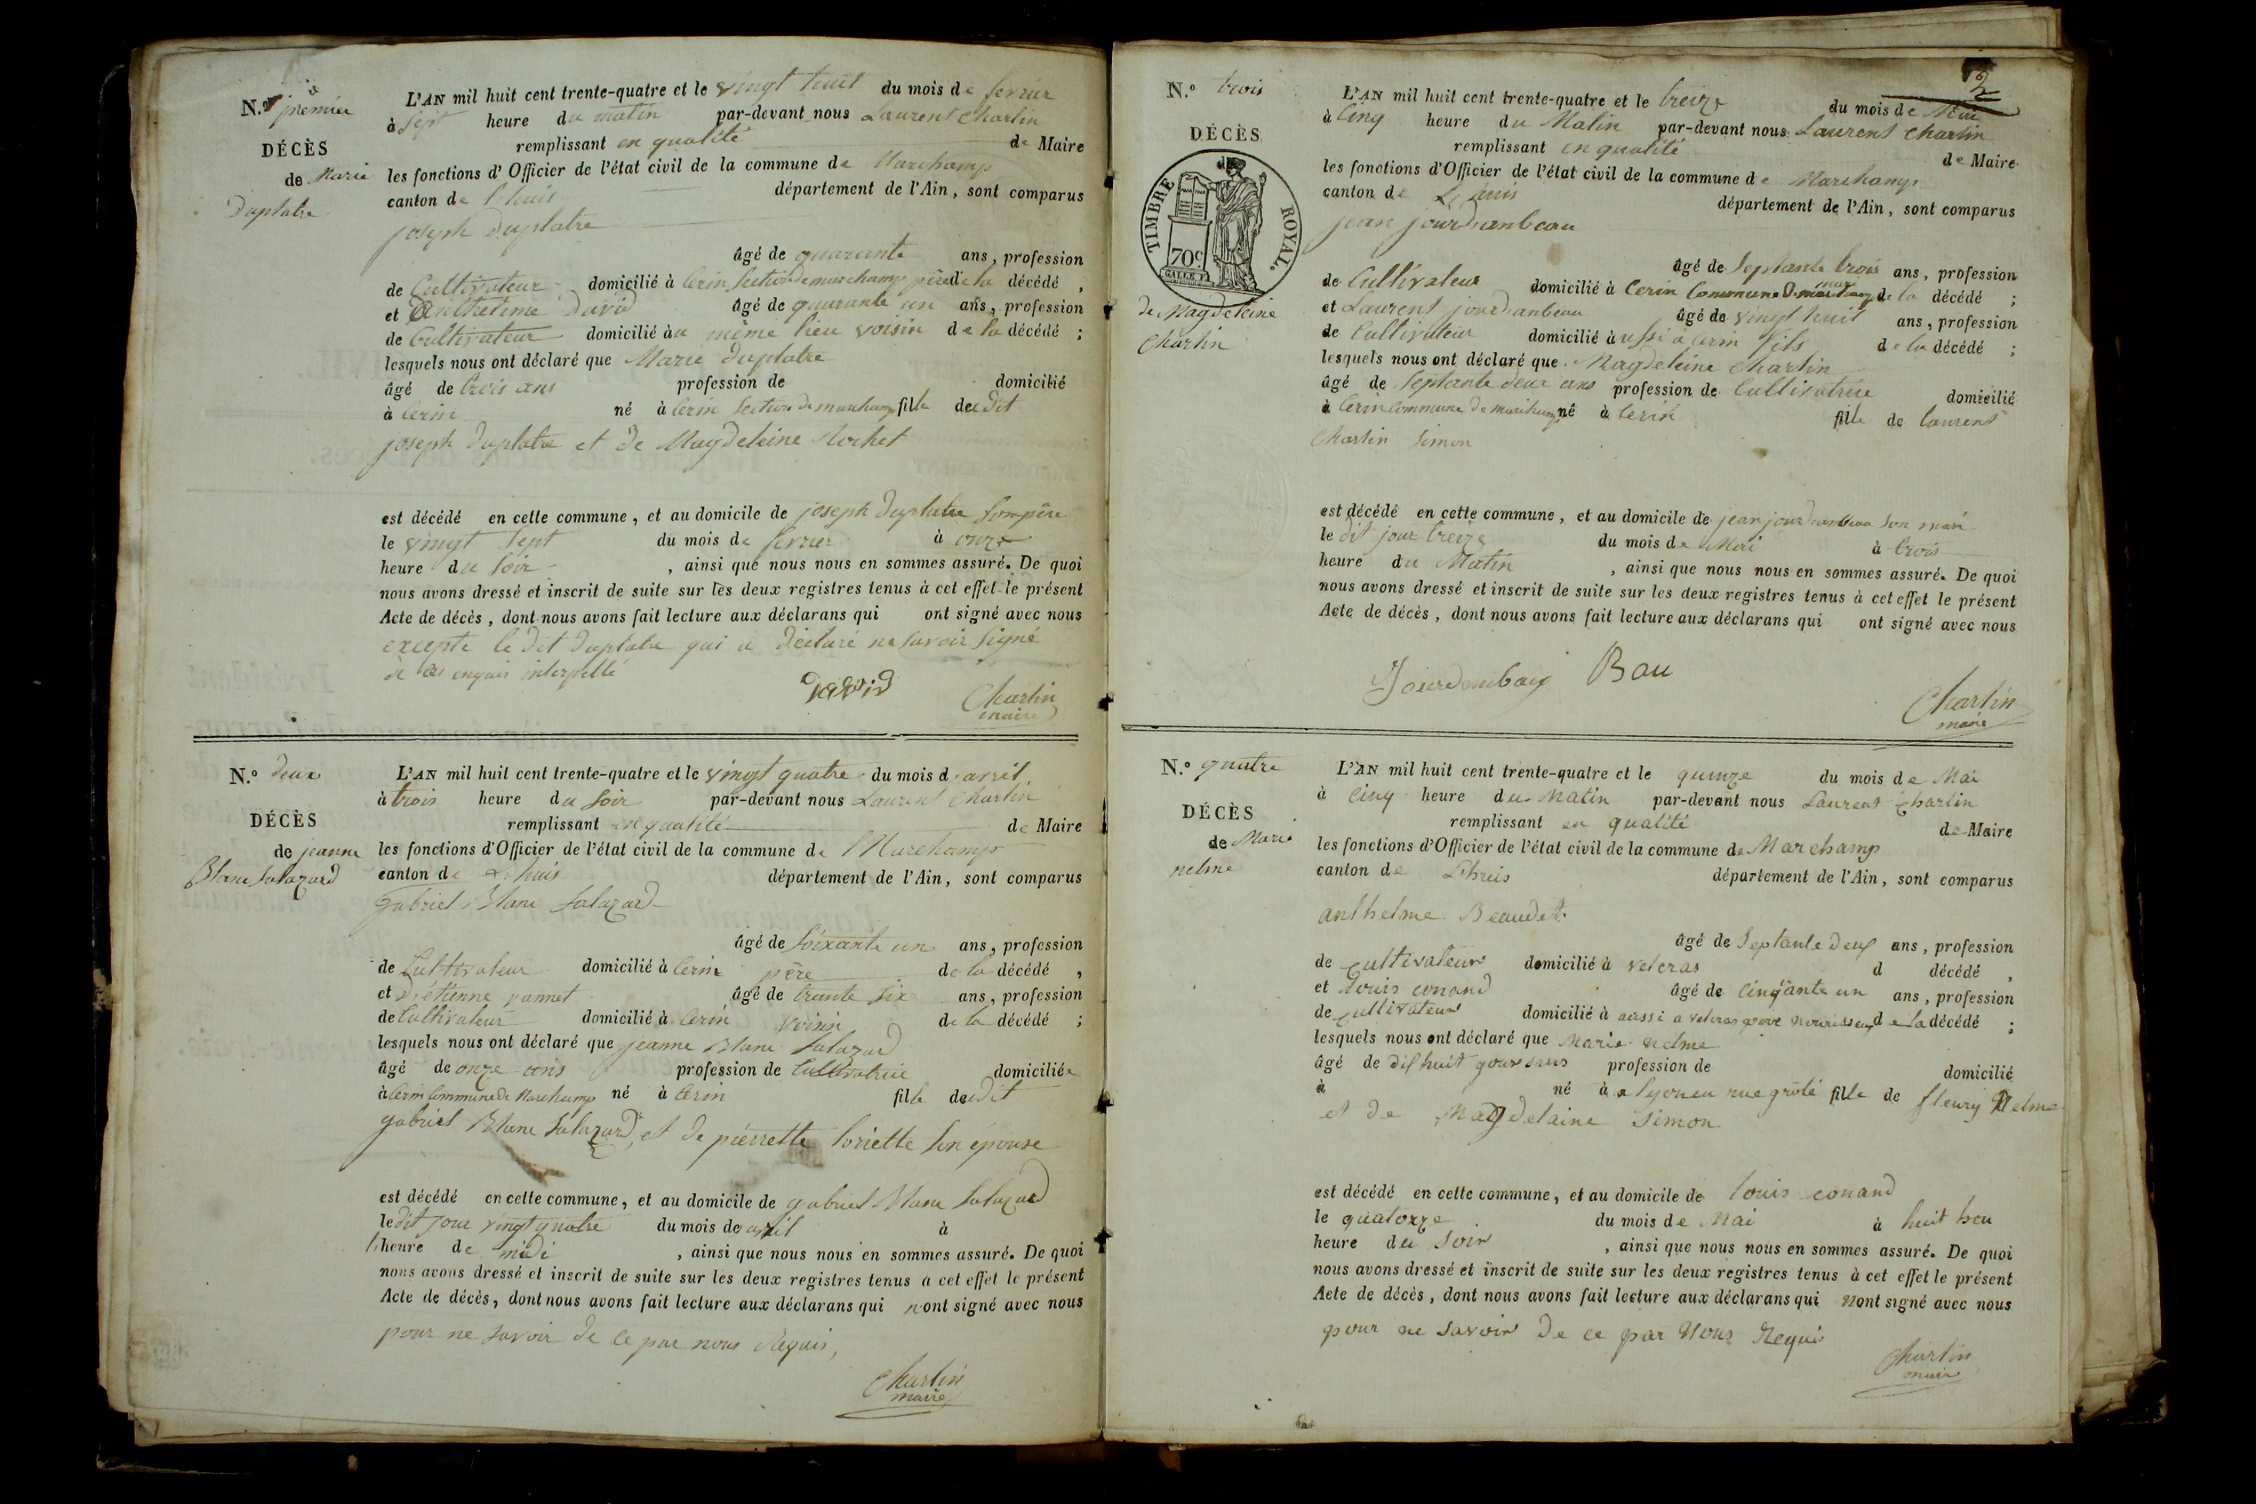 N.º premier
DÉCÈS
de Marie
Duplatre
L'AN mil huit cent trente-quatre et le vingt huit du mois de fevrier
à sept heure du matin par-devant nous Laurent Charlin
remplissant en qualité de Maire
les fonctions d'Officier de l'état civil de la commune de Marchamp
canton de Lhuis département de l'Ain, sont comparus
joseph Duplatre
âgé de quarante ans, profession
de Cultivateur domicilié à Cerin Section de marchamp père de la décédé ,
et Anthelme David âgé de quarante un ans, profession
de Cultivateur domicilié au même lieu voisin de la décédé ;
lesquels nous ont déclaré que Marie Duplatre
âgé de trois ans profession de domicilié
à Cerin né à Cerin Section de marchamp fille de dit
joseph Duplatre et de Magdeleine Rochet
est décédé en cette commune, et au domicile de joseph Duplatre son père
le vingt sept du mois de fevrier à onze
heure du soir , ainsi que nous nous en sommes assuré. De quoi
nous avons dressé et inscrit de suite sur les deux registres tenus à cet effet le présent
Acte de décès, dont nous avons fait lecture aux déclarans qui ont signé avec nous
excepte le dit Duplatre qui a déclaré ne savoir signé
de ce enquis interpellé
david
Charlin
maire
N.º deux
DÉCÈS
de jeanne
Blanc Salazard
L'AN mil huit cent trente-quatre et le vingt quatre du mois d avril
à trois heure du soir par-devant nous Laurent Charlin
remplissant en qualité de Maire
les fonctions d'Officier de l'état civil de la commune de Marchamp
canton de Lhuis département de l'Ain, sont comparus
gabriel Blanc Salazard
âgé de soixante un ans, profession
de Cultivateur domicilié à Cerin père de la décédé ,
et étienne vannet âgé de trente six ans, profession
de Cultivateur domicilié à Cerin voisin de la décédé ;
lesquels nous ont déclaré que jeanne Blanc Salazard
âgé de onze ans profession de Cultivatrice domiciliée
à Cerin Commune de Marchamp né à Cerin fille de dit
gabriel Blanc Salazard, et de pierrette loriette son épouse
est décédé en cette commune, et au domicile de gabriel Blanc Salazard
le dit jour vingt quatre du mois de avril à
heure de midi , ainsi que nous nous en sommes assuré. De quoi
nous avons dressé et inscrit de suite sur les deux registres tenus à cet effet le présent
Acte de décès, dont nous avons fait lecture aux déclarans qui n'ont signé avec nous
pour ne savoir de ce par nous Requis,
Charlin
maire
2
N.º trois
DÉCÈS
TIMBRE ROYAL.
70c
de Magdeleine
Charlin
L'AN mil huit cent trente-quatre et le treize du mois de Mai
à Cinq heure du Matin par-devant nous Laurent Charlin
remplissant en qualité de Maire
les fonctions d'Officier de l'état civil de la commune de Marchamp
canton de Lhuis département de l'Ain, sont comparus
jean jourdanbeau
âgé de septante trois ans, profession
de Cultivateur domicilié à Cerin Commune de marchamp mari de la décédé ;
et Laurent jourdanbeau âgé de vingt huit ans, profession
de Cultivateur domicilié aussi à Cerin fils de la décédé ;
lesquels nous ont déclaré que Magdeleine Charlin
âgé de septante deux ans profession de Cultivatrice domicilié
à Cerin Commune de marchamp né à Cerin fille de laurent
Charlin Simon
est décédé en cette commune, et au domicile de jean jourdanbeau son mari
le dit jour treize du mois de Mai à trois
heure du Matin , ainsi que nous nous en sommes assuré. De quoi
nous avons dressé et inscrit de suite sur les deux registres tenus à cet effet le présent
Acte de décès, dont nous avons fait lecture aux déclarans qui ont signé avec nous
Bau
Charlin
maire
N.º quatre
DÉCÈS
de Marie
nelme
L'AN mil huit cent trente-quatre et le quinze du mois de Mai
à Cinq heure du Matin par-devant nous Laurent Charlin
remplissant en qualité de Maire
les fonctions d'Officier de l'état civil de la commune de Marchamp
canton de Lhuis département de l'Ain, sont comparus
anthelme Beaudet
âgé de septante deux ans, profession
de Cultivateur domicilié à veleras d décédé ,
et Louis conand âgé de cinqante un ans, profession
de Cultivateur domicilié à aussi a veleras père nourisseur de la décédé ;
lesquels nous ont déclaré que Marie nelme
âgé de dishuit jours profession de domicilié
à né à a lyon en rue grolé fille de fleury Nelme
et de Magdelaine Simon
est décédé en cette commune, et au domicile de louis conand
le quatorze du mois de Mai à huit heu
heure du soir , ainsi que nous nous en sommes assuré. De quoi
nous avons dressé et inscrit de suite sur les deux registres tenus à cet effet le présent
Acte de décès, dont nous avons fait lecture aux déclarans qui n'ont signé avec nous
pour ne savoir de ce par Nous Requis
Charlin
maire